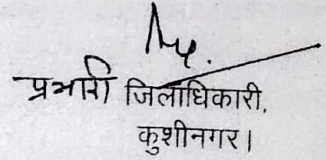 प्रभारी जिलाधिकारी,
कुशीनगर।